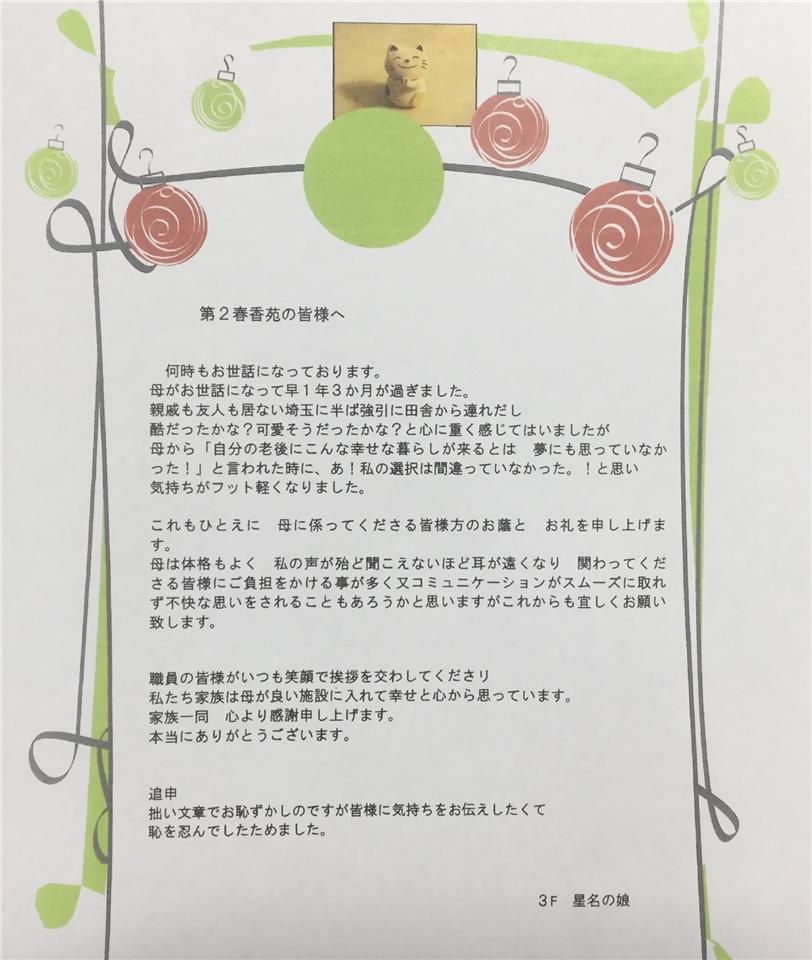 第２春香苑の皆様へ
何時もお世話になっております。
母がお世話になって早１年３か月が過ぎました。
親戚も友人も居ない埼玉に半ば強引に田舎から連れだし
酷だったかな？可愛そうだったかな？と心に重く感じてはいましたが
母から「自分の老後にこんな幸せな暮らしが来るとは　夢にも思っていなか
った！」と言われた時に、あ！私の選択は間違っていなかった。！と思い
気持ちがフット軽くなりました。
これもひとえに　母に係ってくださる皆様方のお蔭と　お礼を申し上げま
す。
母は体格もよく　私の声が殆ど聞こえないほど耳が遠くなり　関わってくだ
さる皆様にご負担をかける事が多く又コミュニケーションがスムーズに取れ
ず不快な思いをされることもあろうかと思いますがこれからも宜しくお願い
致します。
職員の皆様がいつも笑顔で挨拶を交わしてくださリ
私たち家族は母が良い施設に入れて幸せと心から思っています。
家族一同　心より感謝申し上げます。
本当にありがとうございます。
追申
拙い文章でお恥ずかしのですが皆様に気持ちをお伝えしたくて
恥を忍んでしたためました。
３Ｆ　星名の娘